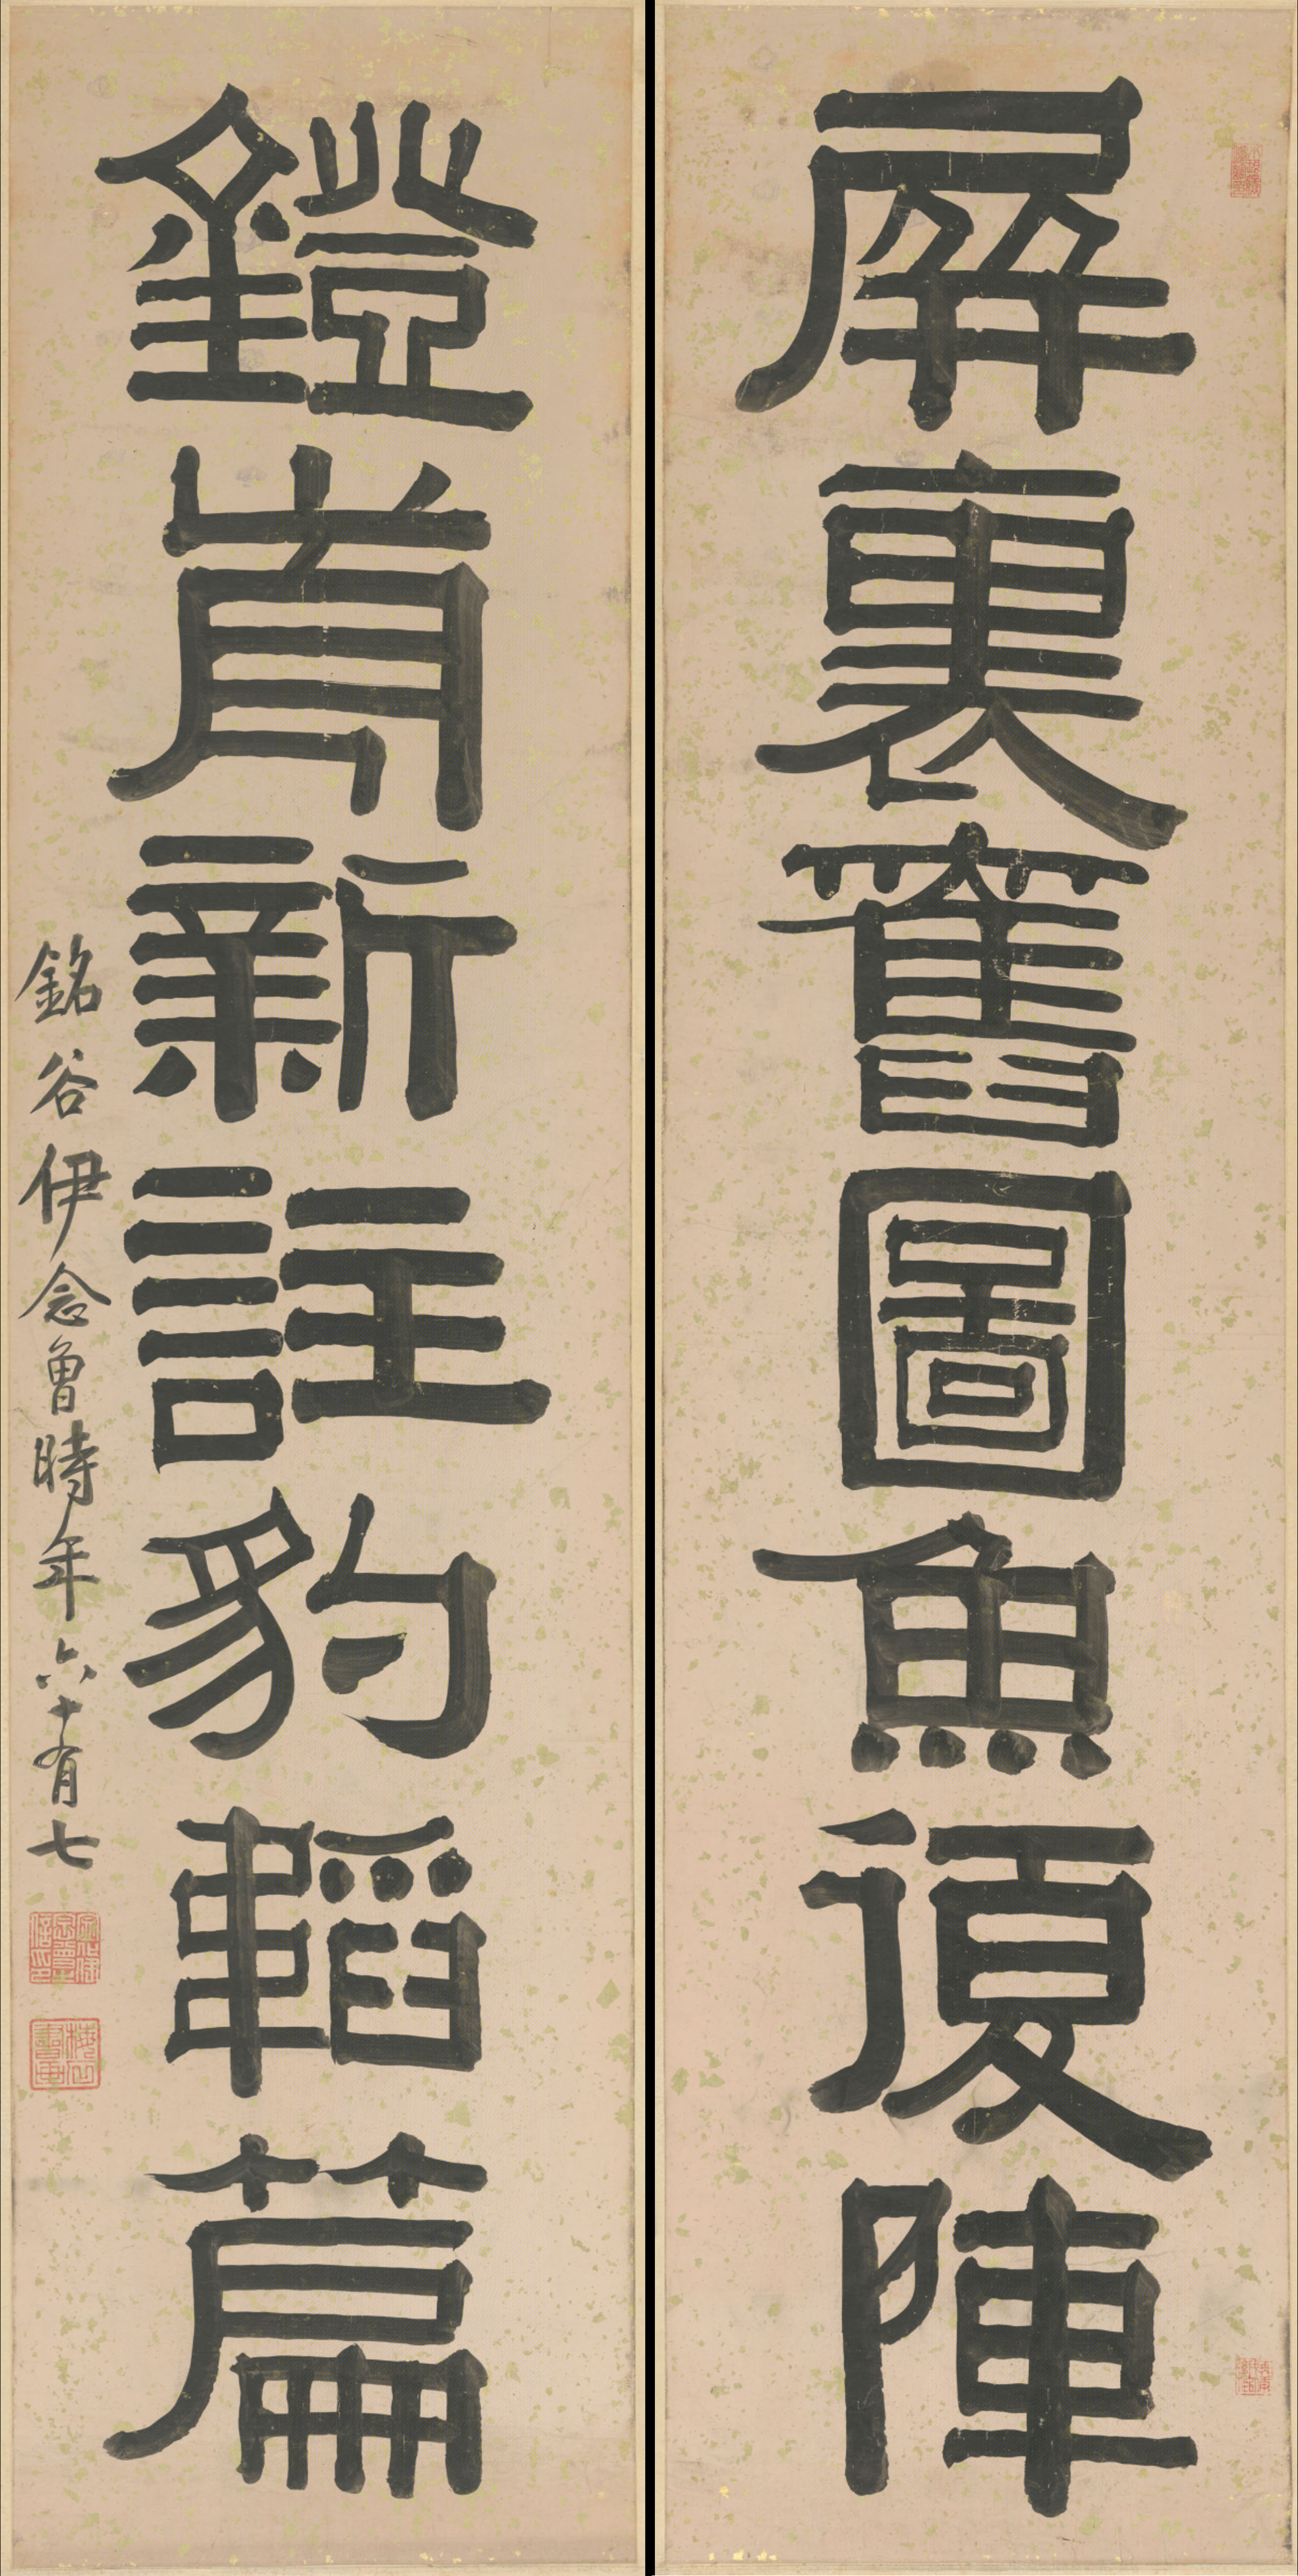 屏裏舊圖魚復陣
鐙前新註豹韜篇
銘谷伊念曾時年六十有七